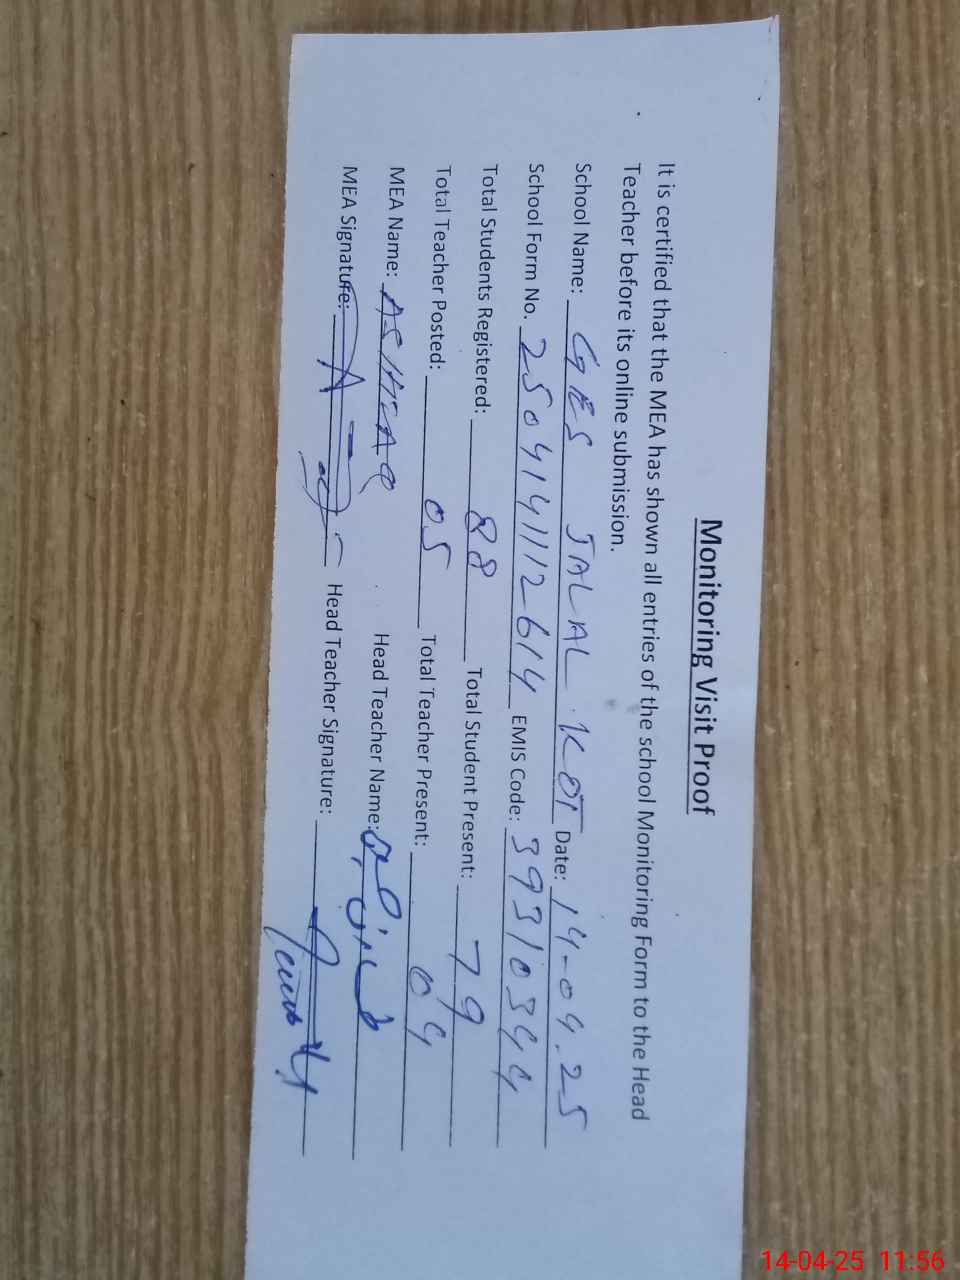 Monitoring Visit Proof
It is certified that the MEA has shown all entries of the school Monitoring Form to the Head
Teacher before its online submission.
School Name: GES JALAL KOT Date: 14-04-25
School Form No. 2504141112614 EMIS Code: 39310344
Total Students Registered: 88 Total Student Present: 79
Total Teacher Posted: 05 Total Teacher Present: 04
MEA Name: ASHFAQ Head Teacher Name:
MEA Signature: Head Teacher Signature:
14-04-25 11:56